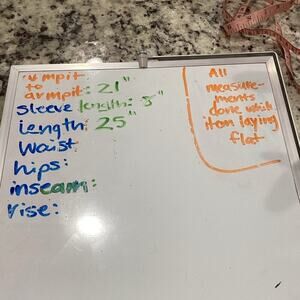 armpit
to
armpit: 21"
sleeve length: 3"
length: 25"
Waist
hips:
inseam:
rise:
All
measure-
ments
done while
item laying
flat